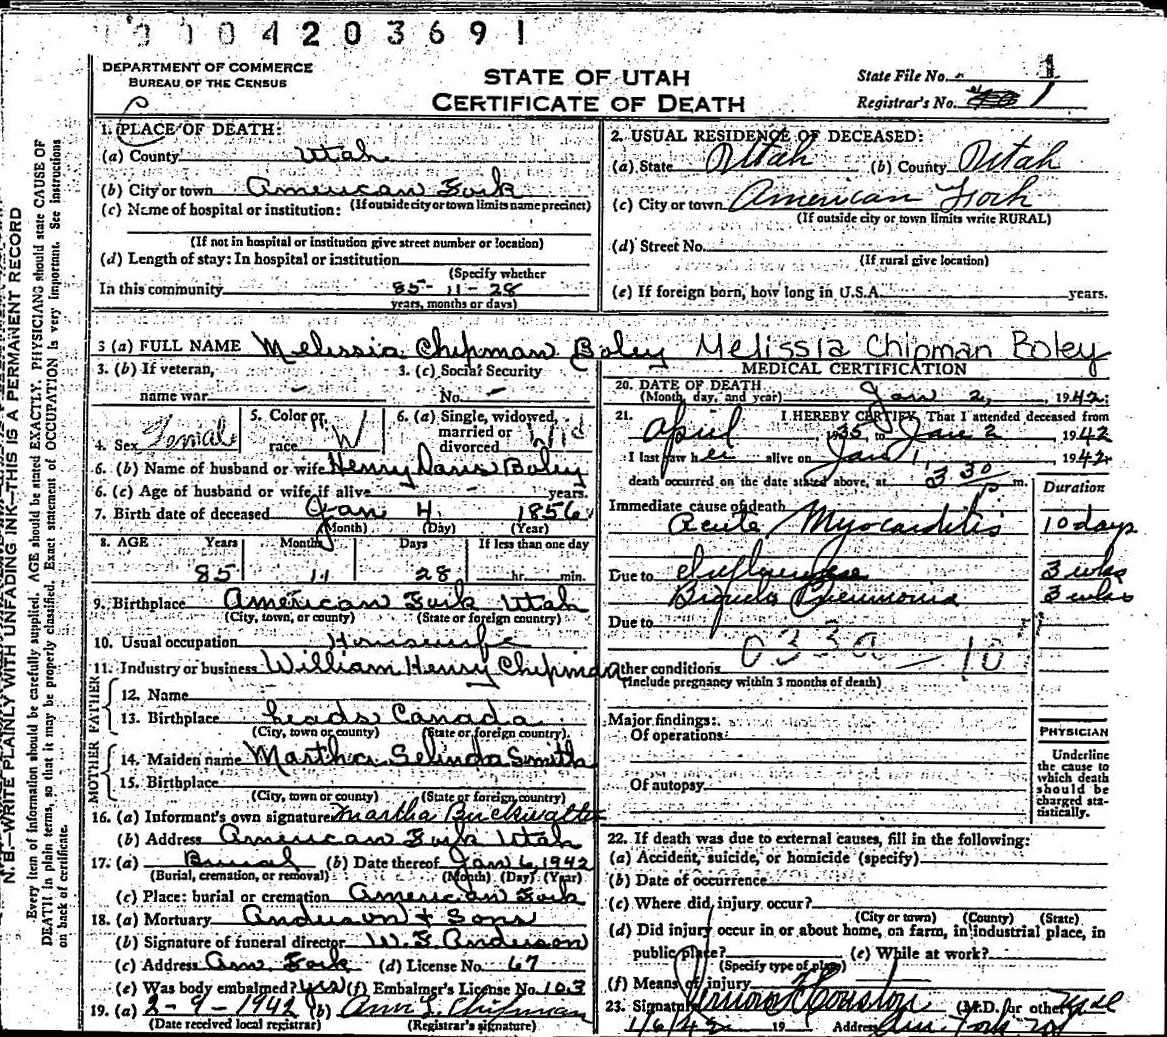 0004203691
DEPARTMENT OF COMMERCE
BUREAU OF THE CENSUS
STATE OF UTAH
CERTIFICATE OF DEATH
State File No. 1
Registrar's No. 1
1. PLACE OF DEATH:
(a) County Utah
(b) City or town American Fork
(If outside city or town limits name precinct)
(c) Name of hospital or institution:
(If not in hospital or institution give street number or location)
(d) Length of stay: In hospital or institution
(Specify whether
In this community 85-11-28
years, months or days)
2. USUAL RESIDENCE OF DECEASED:
(a) State Utah (b) County Utah
(c) City or town American Fork
(If outside city or town limits write RURAL)
(d) Street No.
(If rural give location)
(e) If foreign born, how long in U.S.A. years.
3 (a) FULL NAME Melissia Chipman Boley Melissia Chipman Boley
3. (b) If veteran,
name war -
3. (c) Social Security
No. -
4. Sex Female
5. Color or
race W
6. (a) Single, widowed,
married or
divorced Wid
6. (b) Name of husband or wife Henry Davis Boley
6. (c) Age of husband or wife if alive years.
7. Birth date of deceased Jan 4 1856
(Month) (Day) (Year)
8. AGE Years Months Days If less than one day
85 11 28 hr. min.
9. Birthplace American Fork Utah
(City, town, or county) (State or foreign country)
10. Usual occupation Housewife
11. Industry or business William Henry Chipman
FATHER
12. Name
13. Birthplace Leads Canada
(City, town or county) (State or foreign country)
MOTHER
14. Maiden name Martha Selinda Smith
15. Birthplace
(City, town or county) (State or foreign country)
16. (a) Informant's own signature Martha Buckwalter
(b) Address American Fork Utah
17. (a) Burial (b) Date thereof Jan 6, 1942
(Burial, cremation, or removal) (Month) (Day) (Year)
(c) Place: burial or cremation American Fork
18. (a) Mortuary Anderson & Sons
(b) Signature of funeral director W. F. Anderson
(c) Address Am. Fork (d) License No. 67
(e) Was body embalmed? yes (f) Embalmer's License No. 103
19. (a) 2-9-1942 (b) Ann L. Chipman
(Date received local registrar) (Registrar's signature)
MEDICAL CERTIFICATION
20. DATE OF DEATH
(Month, day, and year) Jan 2, 1942
21. I HEREBY CERTIFY, That I attended deceased from
April 1935 to Jan 2, 1942
I last saw her alive on Jan 1, 1942
death occurred on the date stated above, at 3 30 p m.
Duration
Immediate cause of death
Acute Myocarditis 10 days
Due to Influenza 3 wks
Pneumonia 3 wks
Due to
033a-10
Other conditions
(Include pregnancy within 3 months of death)
Major findings:
Of operations
Of autopsy
PHYSICIAN
Underline
the cause to
which death
should be
charged sta-
tistically.
22. If death was due to external causes, fill in the following:
(a) Accident, suicide, or homicide (specify)
(b) Date of occurrence
(c) Where did injury occur?
(City or town) (County) (State)
(d) Did injury occur in or about home, on farm, in industrial place, in
public place? (e) While at work?
(Specify type of place)
(f) Means of injury
23. Signature Houston (M.D. or other)
1/6/42 19 Address Am. Fork
N.B.—WRITE PLAINLY WITH UNFADING INK—THIS IS A PERMANENT RECORD
Every item of information should be carefully supplied. AGE should be stated EXACTLY. PHYSICIANS should state CAUSE OF
DEATH in plain terms, so that it may be properly classified. Exact statement of OCCUPATION is very important. See instructions
on back of certificate.